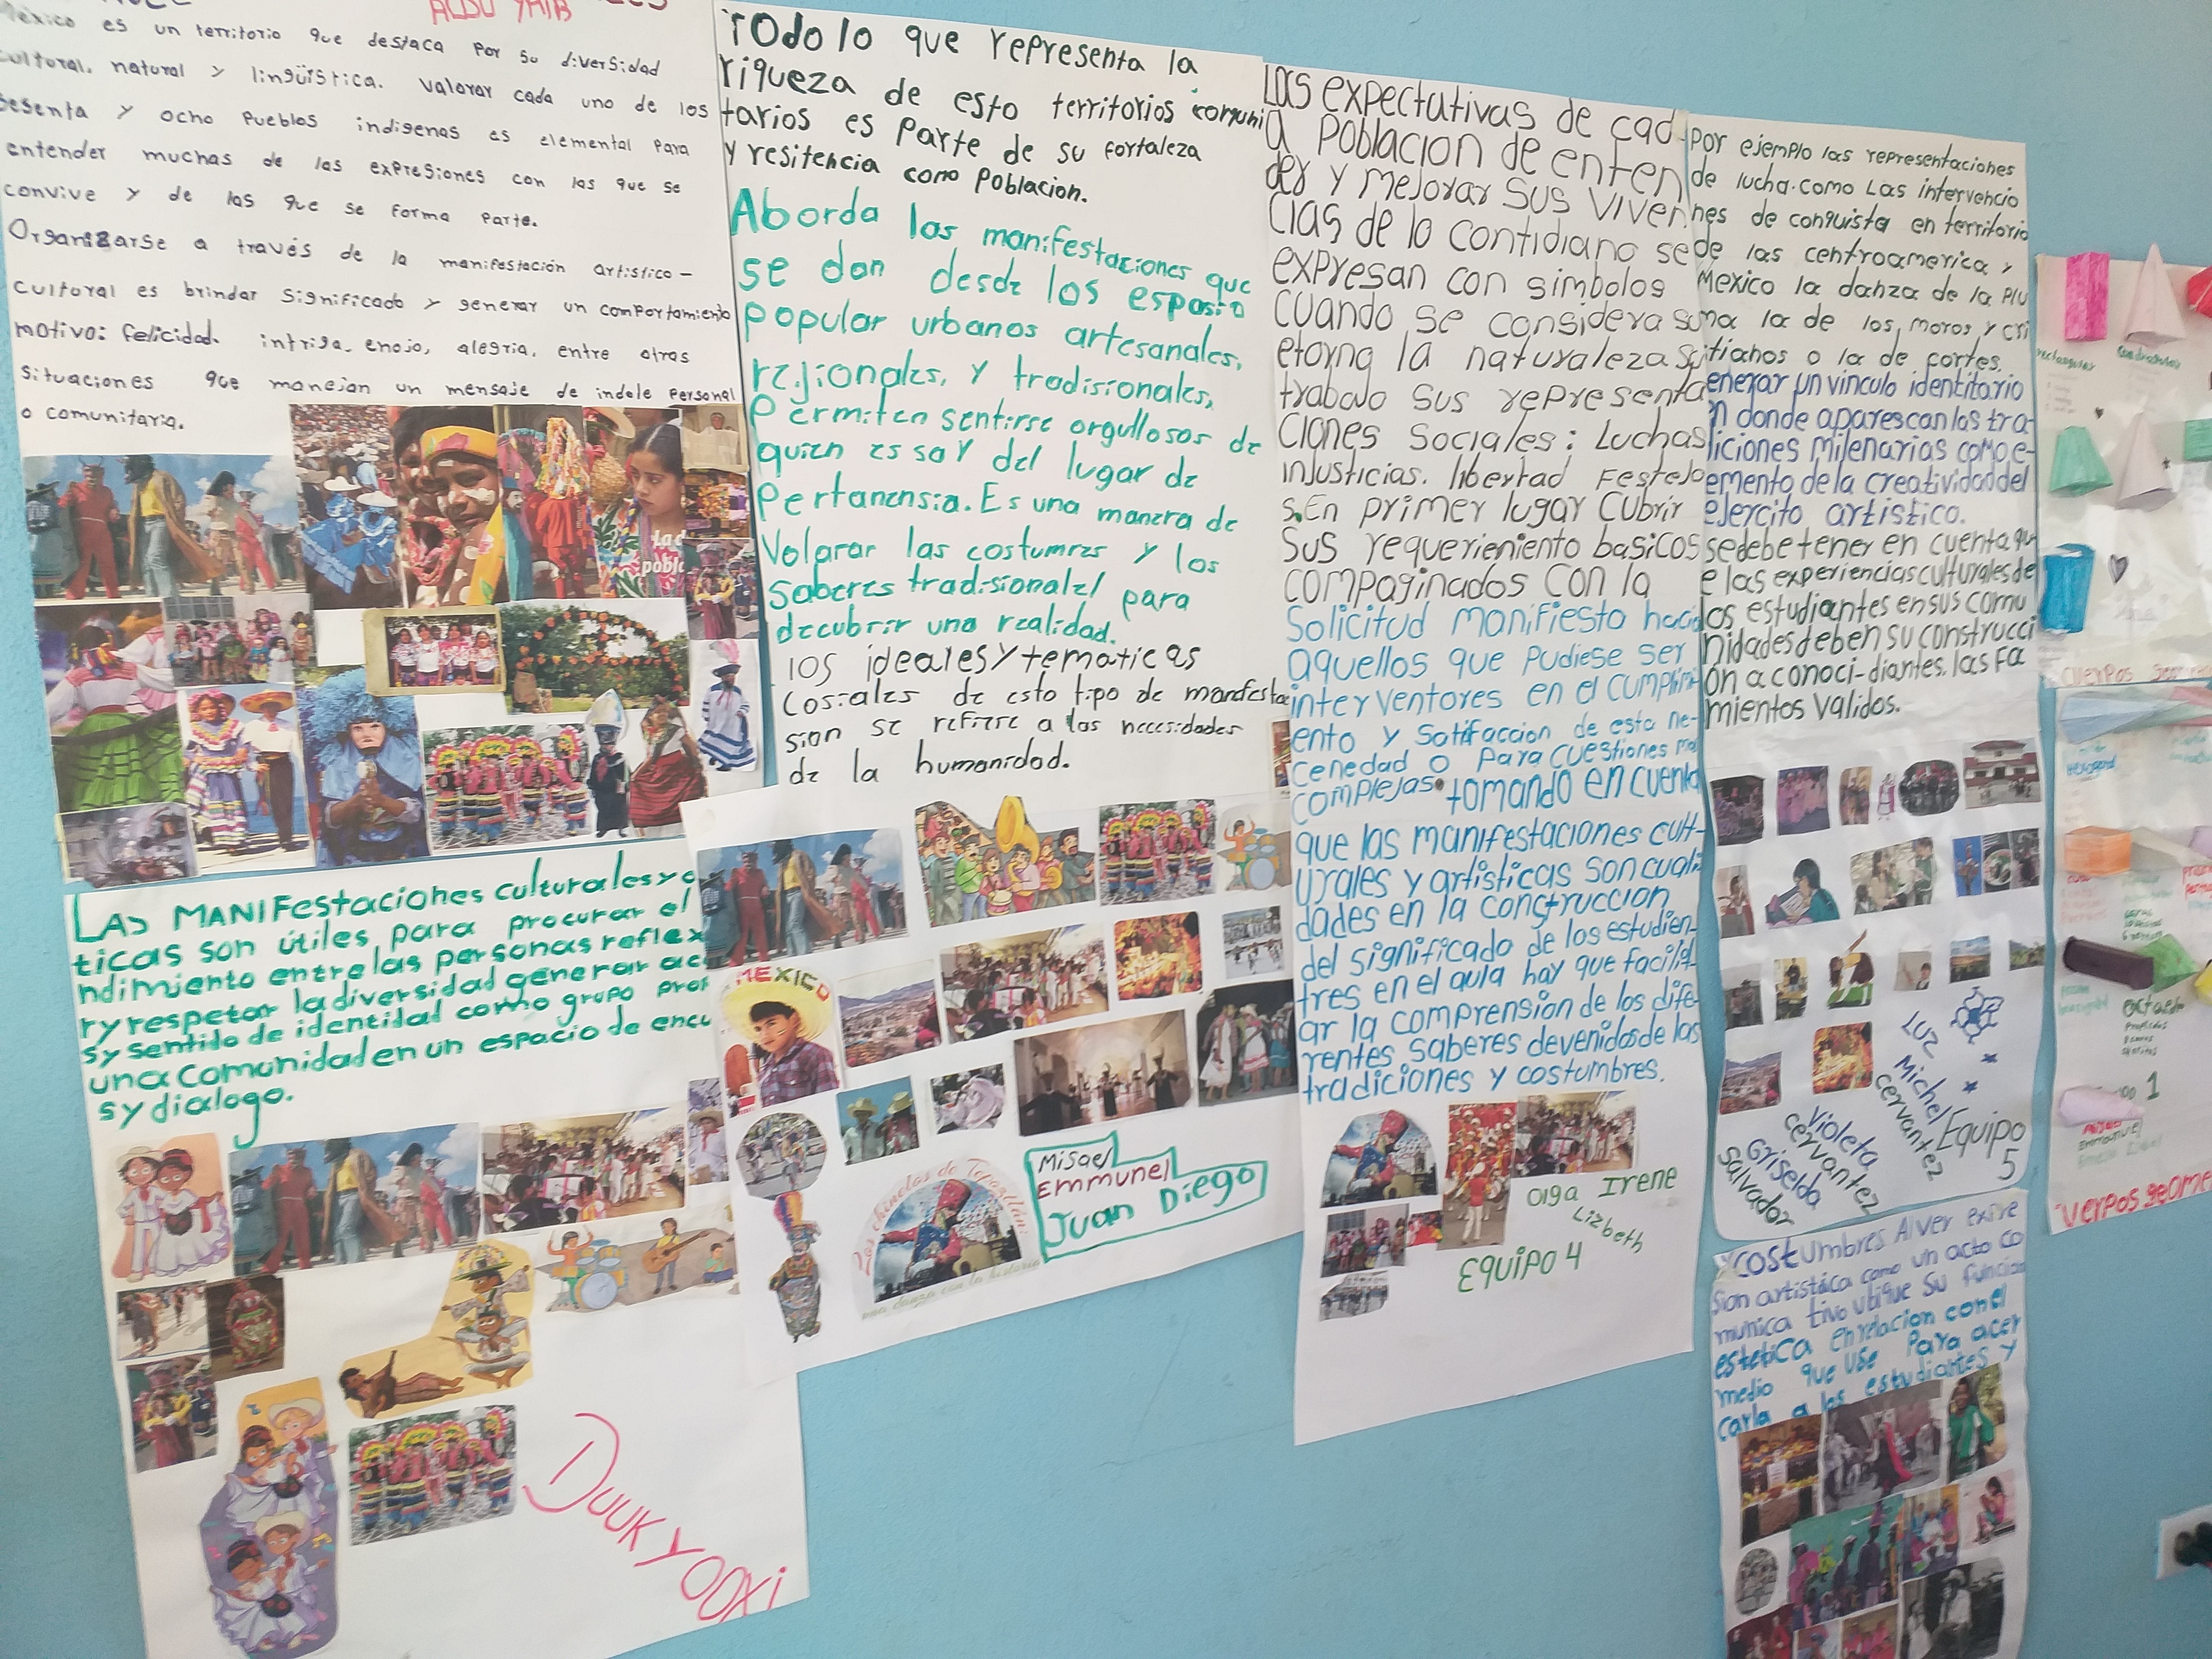 ALDO YAIB
México es un territorio que destaca por su diversidad
cultural, natural y lingüística. Valorar cada uno de los
sesenta y ocho Pueblos indigenas es elemental para
entender muchas de las expresiones con las que se
convive y de las que se forma parte.
Organizarse a través de la manifestación artístico-
cultural es brindar significado y generar un comportamiento
motivo: felicidad. intriga, enojo, alegria, entre otras
situaciones que manejan un mensaje de indole personal
o comunitaria.
La d
pobl
LAS MANIFestaciones culturales y a
ticas son útiles para procurar el
ndimiento entre las personas reflex
r y respetar la diversidad generar ac
s y sentido de identidad como grupo pro
una comunidad en un espacio de encu
s y dialogo.
DUUK YOOXI
TOdo lo que representa la
riqueza de esto territorios comuni
tarios es parte de su fortaleza
y resitencia como poblacion.
Aborda las manifestaciones que
se dan desde los esposio
popular urbanos artesanales,
regionales, y tradisionales,
Permiten sentirse orgullosos de
quien es soy del lugar de
Pertanensia. Es una manera de
Volarar las costumres y los
saberes tradisionalel para
decubrir una realidad.
los ideales y tematicas
Cosiales de esto tipo de manifesta
sion se refiere a las necesidades
de la humanidad.
MEXICO
Los chinelos de Tepoztlán:
una danza con la historia
Misael
Emmunel
Juan Diego
Las expectativas de cad
a poblacion de enten
der y mejorar sus viven
cias de lo contidiano se
expresan con simbolos
cuando se considera su
etorng la naturaleza su
trabajo sus representa
ciones sociales: Luchas
injusticias. libertad Festejo
s. En primer lugar cubrir
sus requerieniento basicos
compaginados con la
Solicitud manifiesta hacia
aquellos que pudiese ser
interventores en el cumplimi
ento y satifaccion de esta ne-
cenedad o para cuestiones ma
complejas. tomando en cuenta
que las manifestaciones cult-
urales y artisticas son cuali
dades en la construccion
del significado de los estudien-
tres en el aula hay que facilit
ar la comprension de los dife
rentes saberes devenidos de las
tradiciones y costumbres.
Olga Irene
Lizbeth
EQUIPO 4
Por ejemplo las representaciones
de lucha. como Las intervencio
nes de conquista en territorio
de las centroamerica y
Mexico la danza de la Plu
ma la de los, moros y cri
stianos o la de cortes.
enerar un vinculo identitario
n donde aparescan las tra-
diciones milenarias como e-
emento de la creatividad del
ejercito artistico.
se debe tener en cuenta qu
e las experiencias culturales de
los estudiantes en sus comu
nidades deben su construcci
on a conoci-diantes. las Fa
mientos validos.
LUZ
Michel
cervantez
Violeta
cervantez
Griselda
Salvador
Equipo
5
y costumbres A lver exive
sion artistica como un acto co
munica tivo ubique su funcion
estetica en relacion con el
medio que use Para acer
carla a los estudiantes y
Cuerpos
1
Emmanuel
cuerpos geome